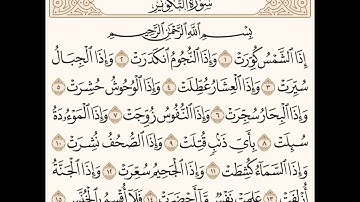 سُورَةُ التَّكْوِيرِ
بِسْمِ ٱللَّهِ ٱلرَّحْمَٰنِ ٱلرَّحِيمِ
إِذَا ٱلشَّمْسُ كُوِّرَتْ ١ وَإِذَا ٱلنُّجُومُ ٱنكَدَرَتْ ٢ وَإِذَا ٱلْجِبَالُ
سُيِّرَتْ ٣ وَإِذَا ٱلْعِشَارُ عُطِّلَتْ ٤ وَإِذَا ٱلْوُحُوشُ حُشِرَتْ ٥
وَإِذَا ٱلْبِحَارُ سُجِّرَتْ ٦ وَإِذَا ٱلنُّفُوسُ زُوِّجَتْ ٧ وَإِذَا ٱلْمَوْءُۥدَةُ
سُئِلَتْ ٨ بِأَيِّ ذَنۢبٍ قُتِلَتْ ٩ وَإِذَا ٱلصُّحُفُ نُشِرَتْ ١٠
وَإِذَا ٱلسَّمَآءُ كُشِطَتْ ١١ وَإِذَا ٱلْجَحِيمُ سُعِّرَتْ ١٢ وَإِذَا ٱلْجَنَّةُ
أُزْلِفَتْ ١٣ عَلِمَتْ نَفْسٌ مَّآ أَحْضَرَتْ ١٤ فَلَآ أُقْسِمُ بِٱلْخُنَّسِ ١٥